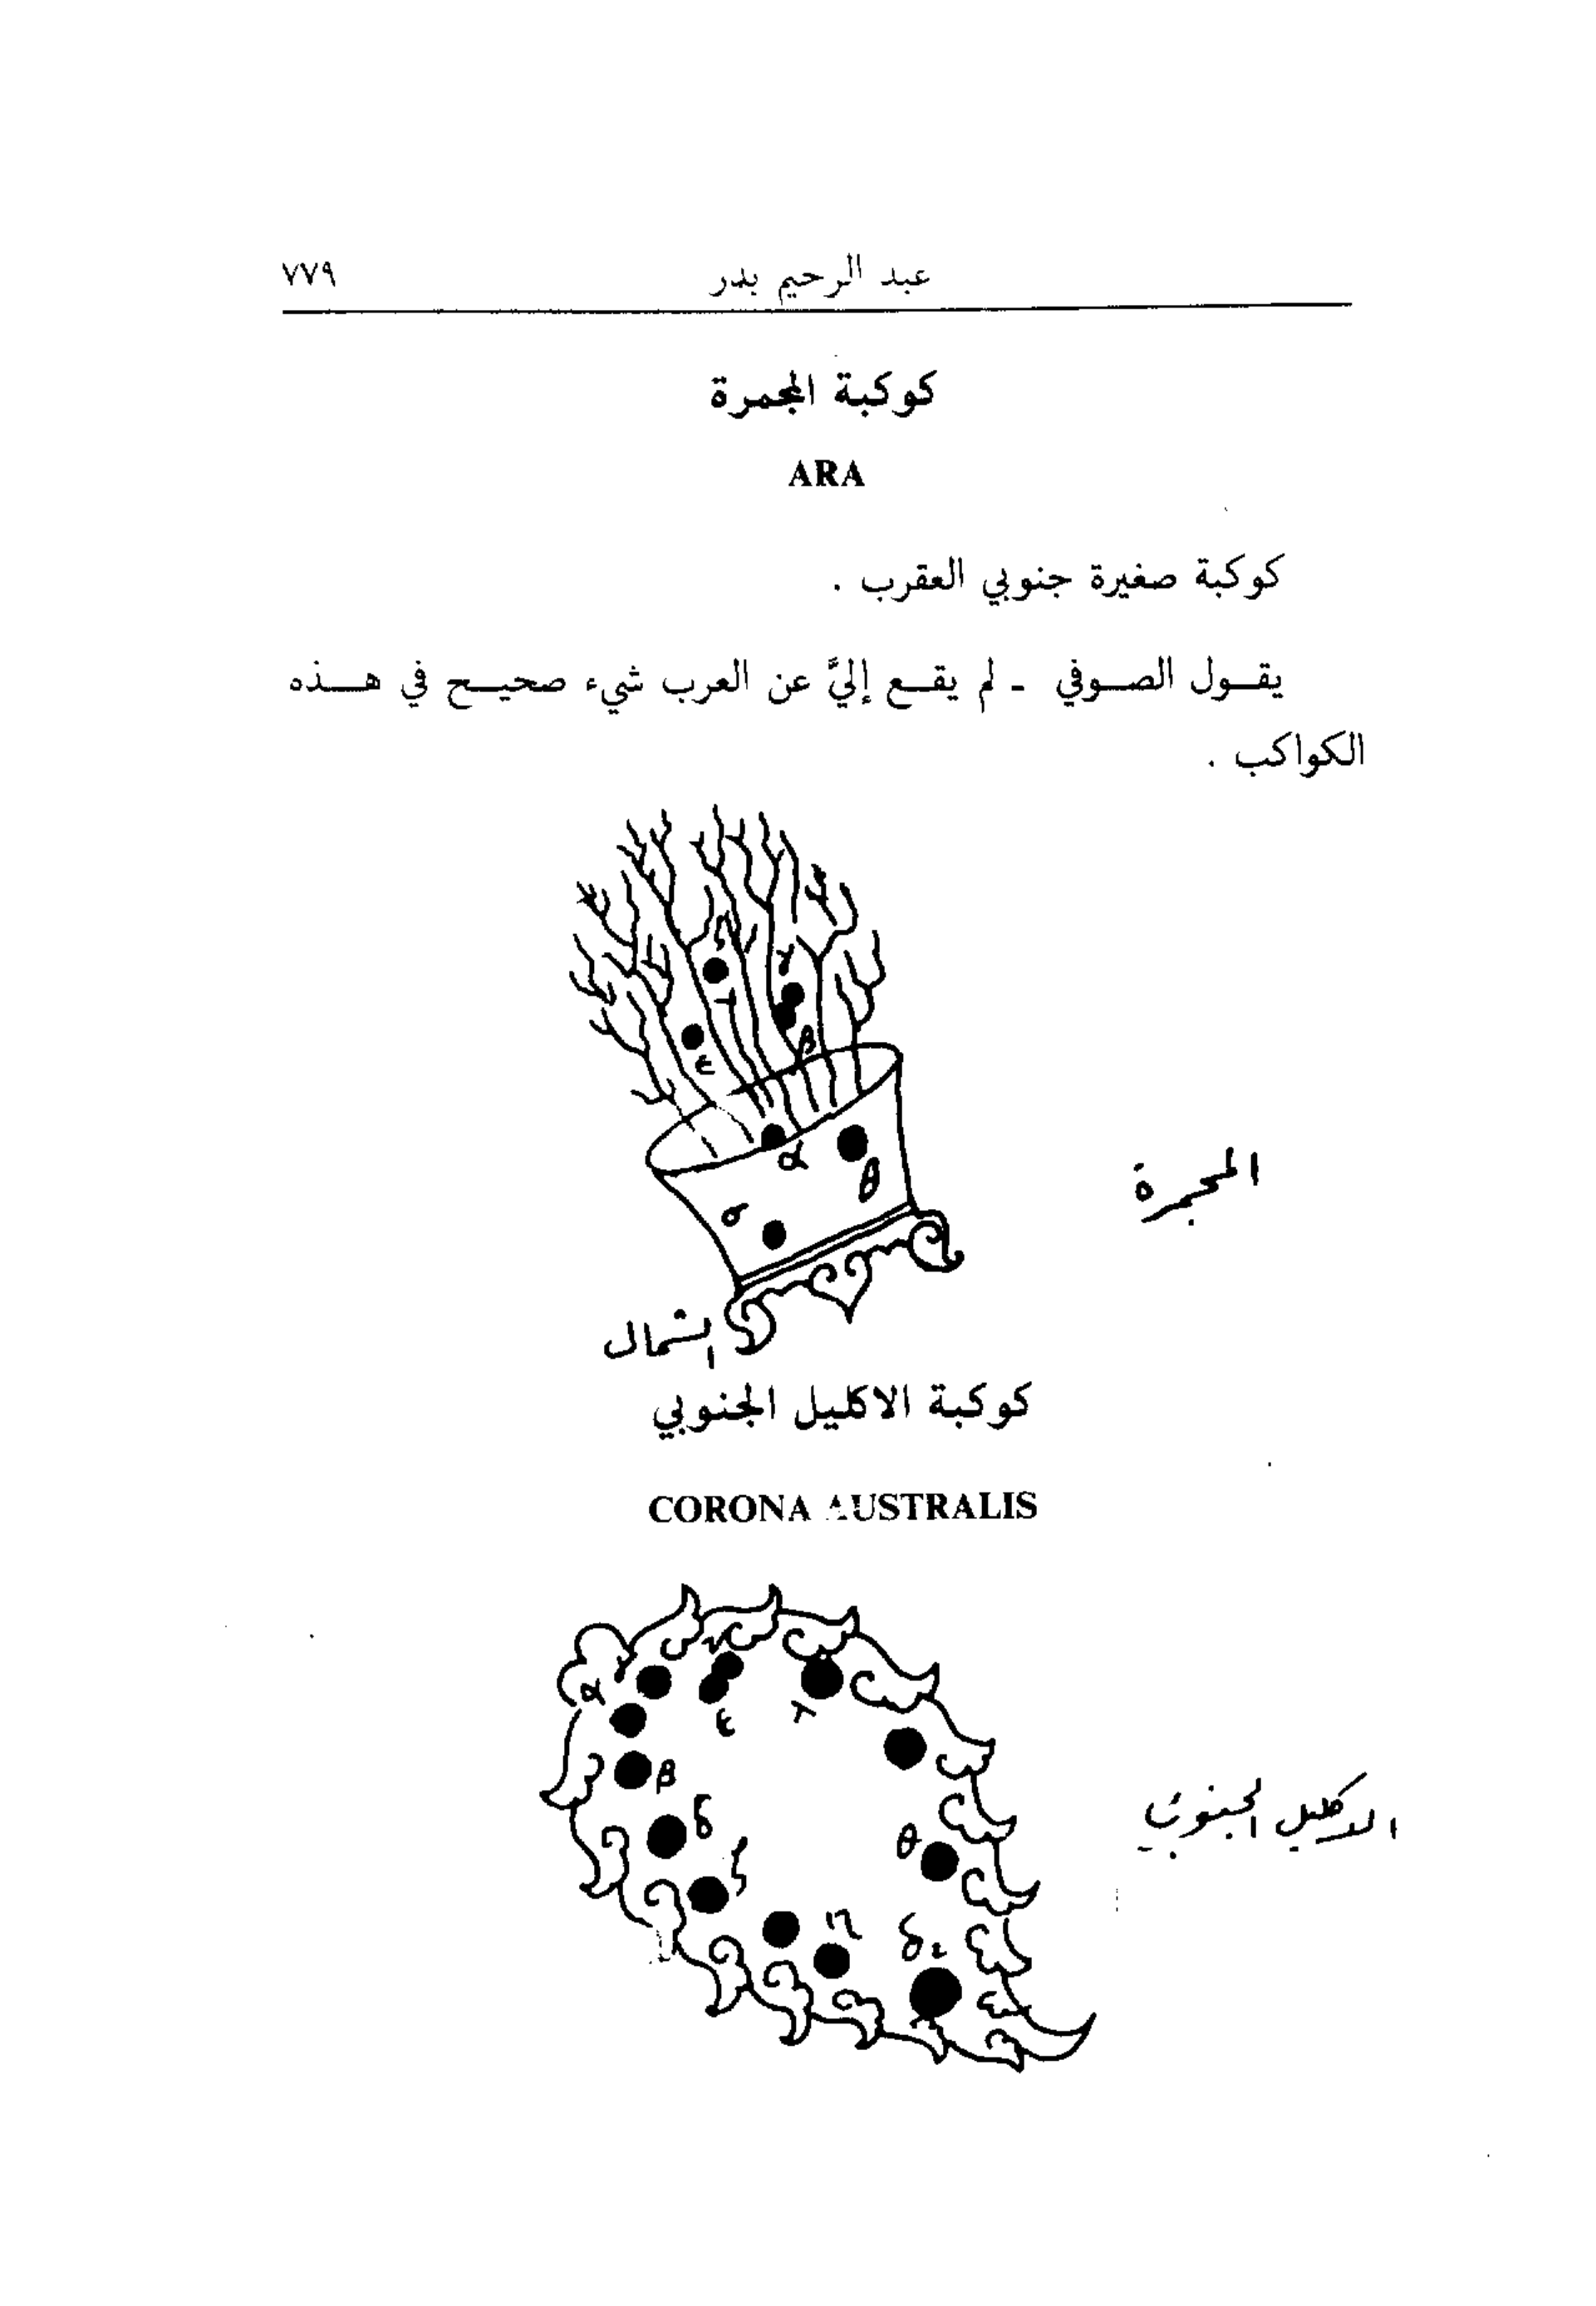 عبد الرحيم بدر ٧٧٩
كوكبة المجمرة
ARA
كوكبة صغيرة جنوبي العقرب .
يقول الصوفي - لم يقع إليَّ عن العرب شيء صحيح في هذه
الكواكب .
ζ
γ
ε
β
α
θ
σ
المجمرة
الشمال
كوكبة الاكليل الجنوبي
CORONA AUSTRALIS
γ
α
ε
β
δ
ζ
θ
η
الاكليل الجنوبي